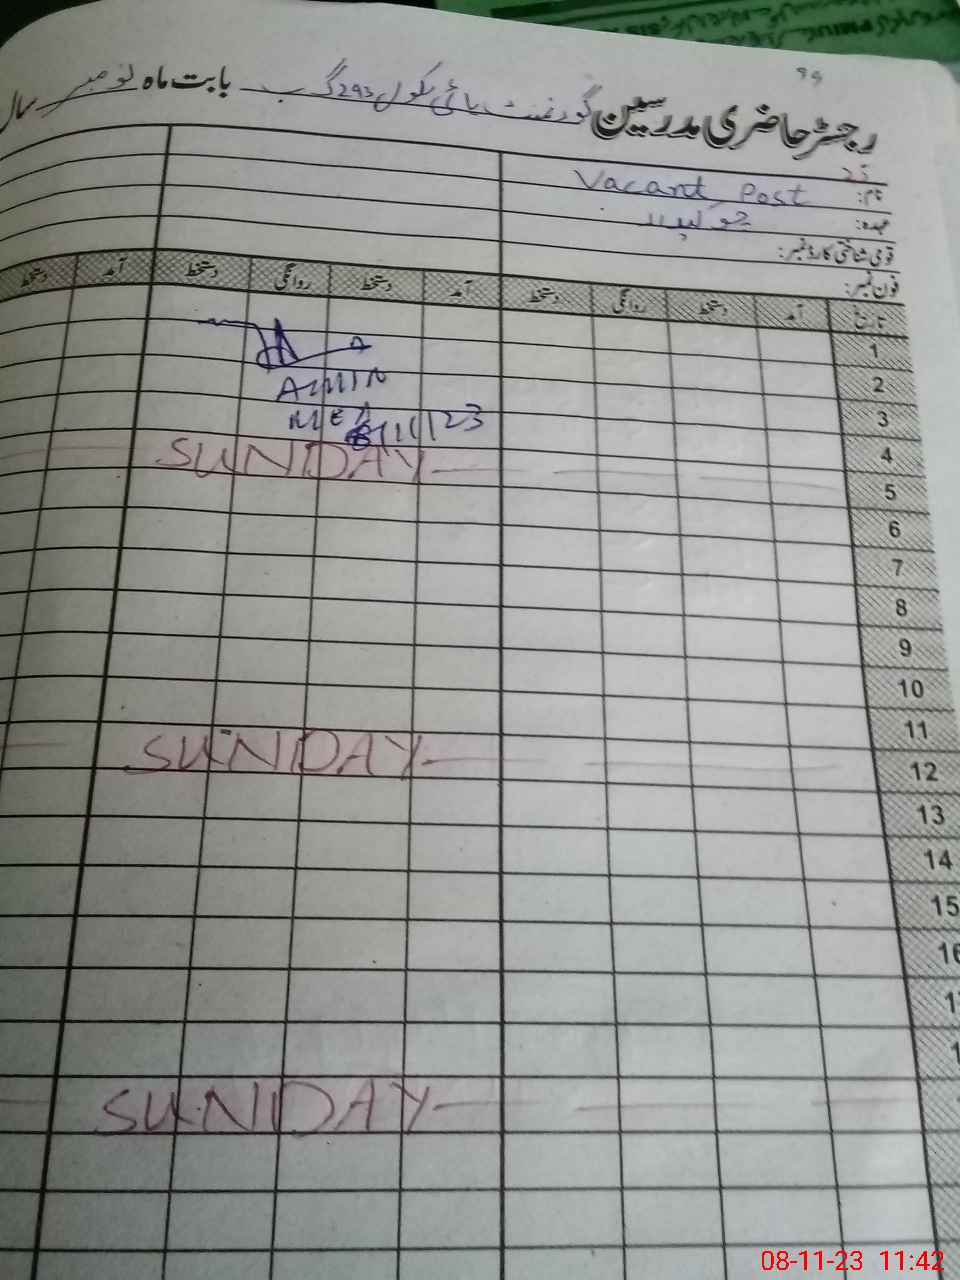 99
رجسٹر حاضری مدرسین گورنمنٹ ہائی سکول 293 گ ب بابت ماہ نومبر سال
25
نام: Vacant Post
عہدہ: چوکیدار
قومی شناختی کارڈ نمبر:
فون نمبر:
تاریخ آمد دستخط روانگی دستخط آمد دستخط روانگی دستخط آمد دستخط
1
2
ADMIN
3
MEA
4
/11/23
5 SUNDAY
6
7
8
9
10
11
12 SUNDAY
13
14
15
16
SUNDAY
08-11-23 11:42